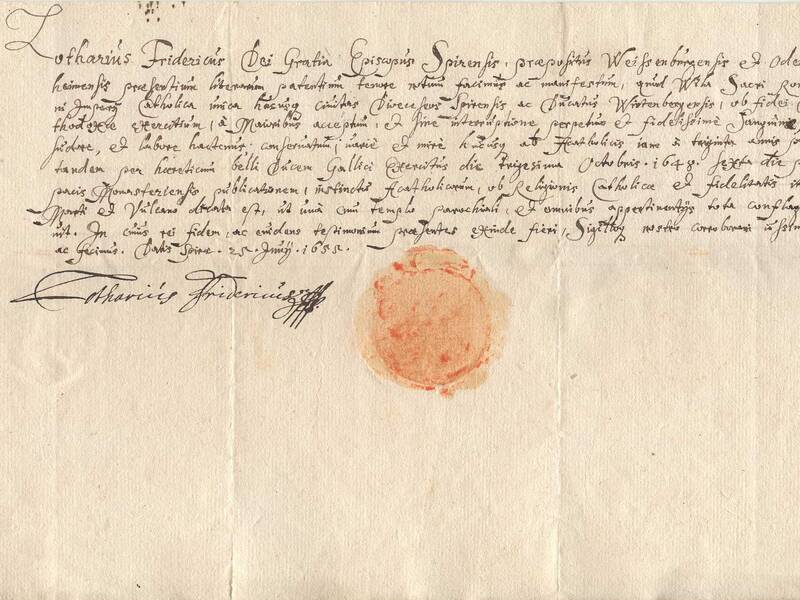 Lotharius Fridericus Dei Gratia Episcopus Spirensis, præpositus Weissenburgensis et Oden
heimensis præsentium literarum patentium tenore notum facimus ac manifestum, quod Wila Sacri Ro
ni Imperij Catholica unica hucusq civitas Diœceseos Spirensis ac Ducatus Wirtenbergensis, ob fidei
thodoxæ exercitium, à Maioribus acceptum, et sine interruptione perpetuo et fidelissimè sanguine
sudore, et labore hactenus conservatum, variè et mirè hucusq ab Acatholicis iam à triginta annis
tandem per hæreticum belli Ducem Gallici Exercitus die trigesima Octobris .1648. sexta die
pacis Monasteriensis publicationem, instinctu Acatholicorum, ob Religionis Catholicæ et fidelitatis
Marti et Vulcano dicata est, ut unà cum templo parochiali, et omnibus appertinentijs tota conflag
vit. In cuius rei fidem, ac evidens testimonium præsentes exinde fieri, Sigilloq nostro corroborari iussim
ac fecimus. Datis Spiræ .25. Junij .1655.
Lotharius Fridericus